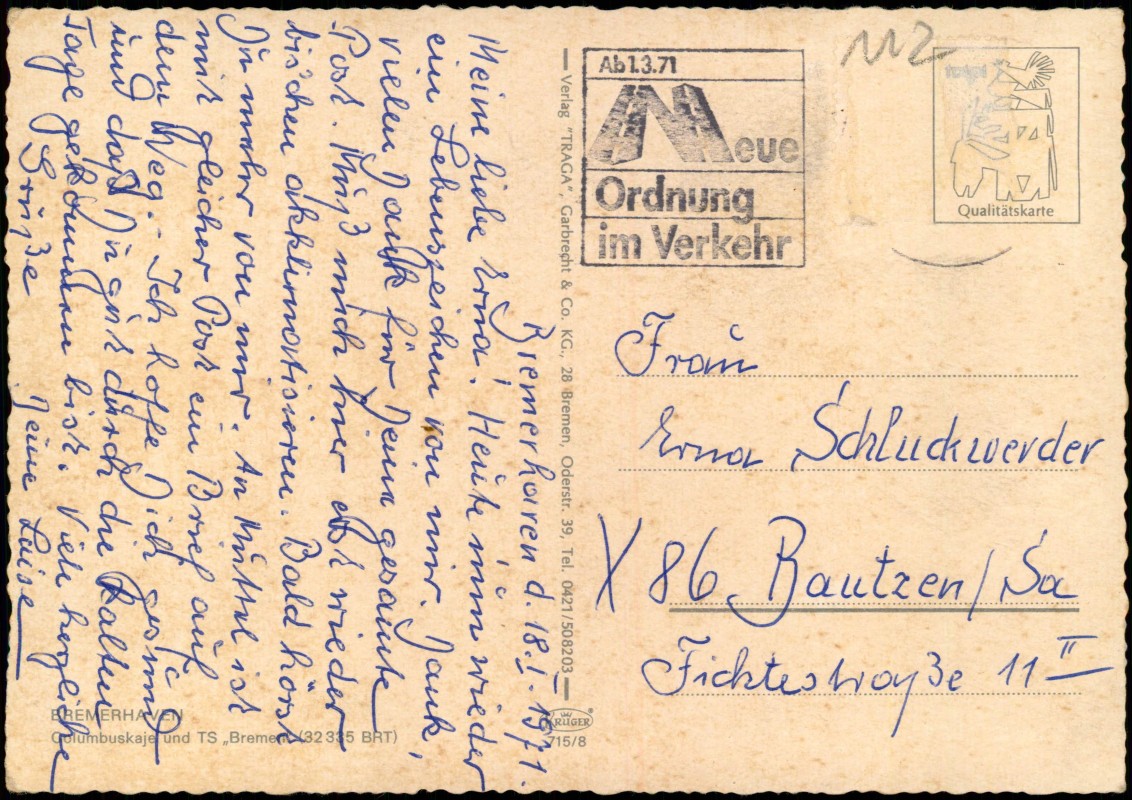 Bremerhaven d. 18.I.1971.
Meine liebe Erna! Heute nun wieder
ein Lebenszeichen von mir. Dank,
vielen Dank für Deine gesamte
Post. Muß mich hier erst wieder
bischen akklimatisieren. Bald hörst
Du mehr von mir. An Muttel ist
mit gleicher Post ein Brief auf
dem Weg. - Ich hoffe Dich gesund
und daß Du gut durch die kalten
Tage gekommen bist. Viele herzliche
Grüße Deine Luise
BREMERHAVEN
Columbuskaje und TS „Bremen" (32 335 BRT)
Verlag "TRAGA", Garbrecht & Co. KG., 28 Bremen, Oderstr. 39, Tel. 0421/508203
KRÜGER
715/8
Ab 1.3.71
Neue
Ordnung
im Verkehr
Qualitätskarte
Frau
Erna Schluckwerder
X 86 Bautzen/Sa
Fichtestraße 11 II